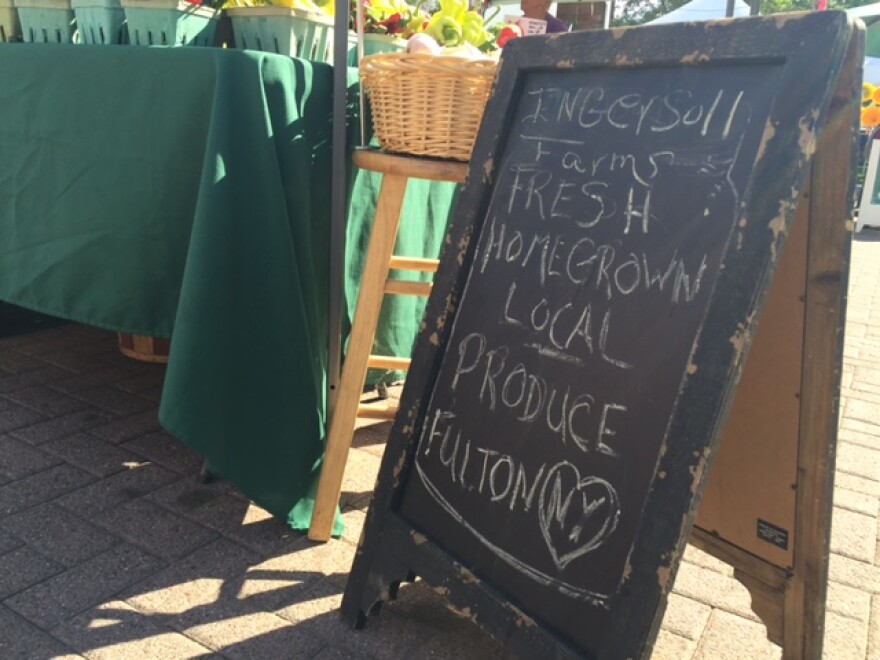 INGerSoll
Farms
FRESH
HOMEGROWN
LOCAL
PRODUCE
FULTON NY